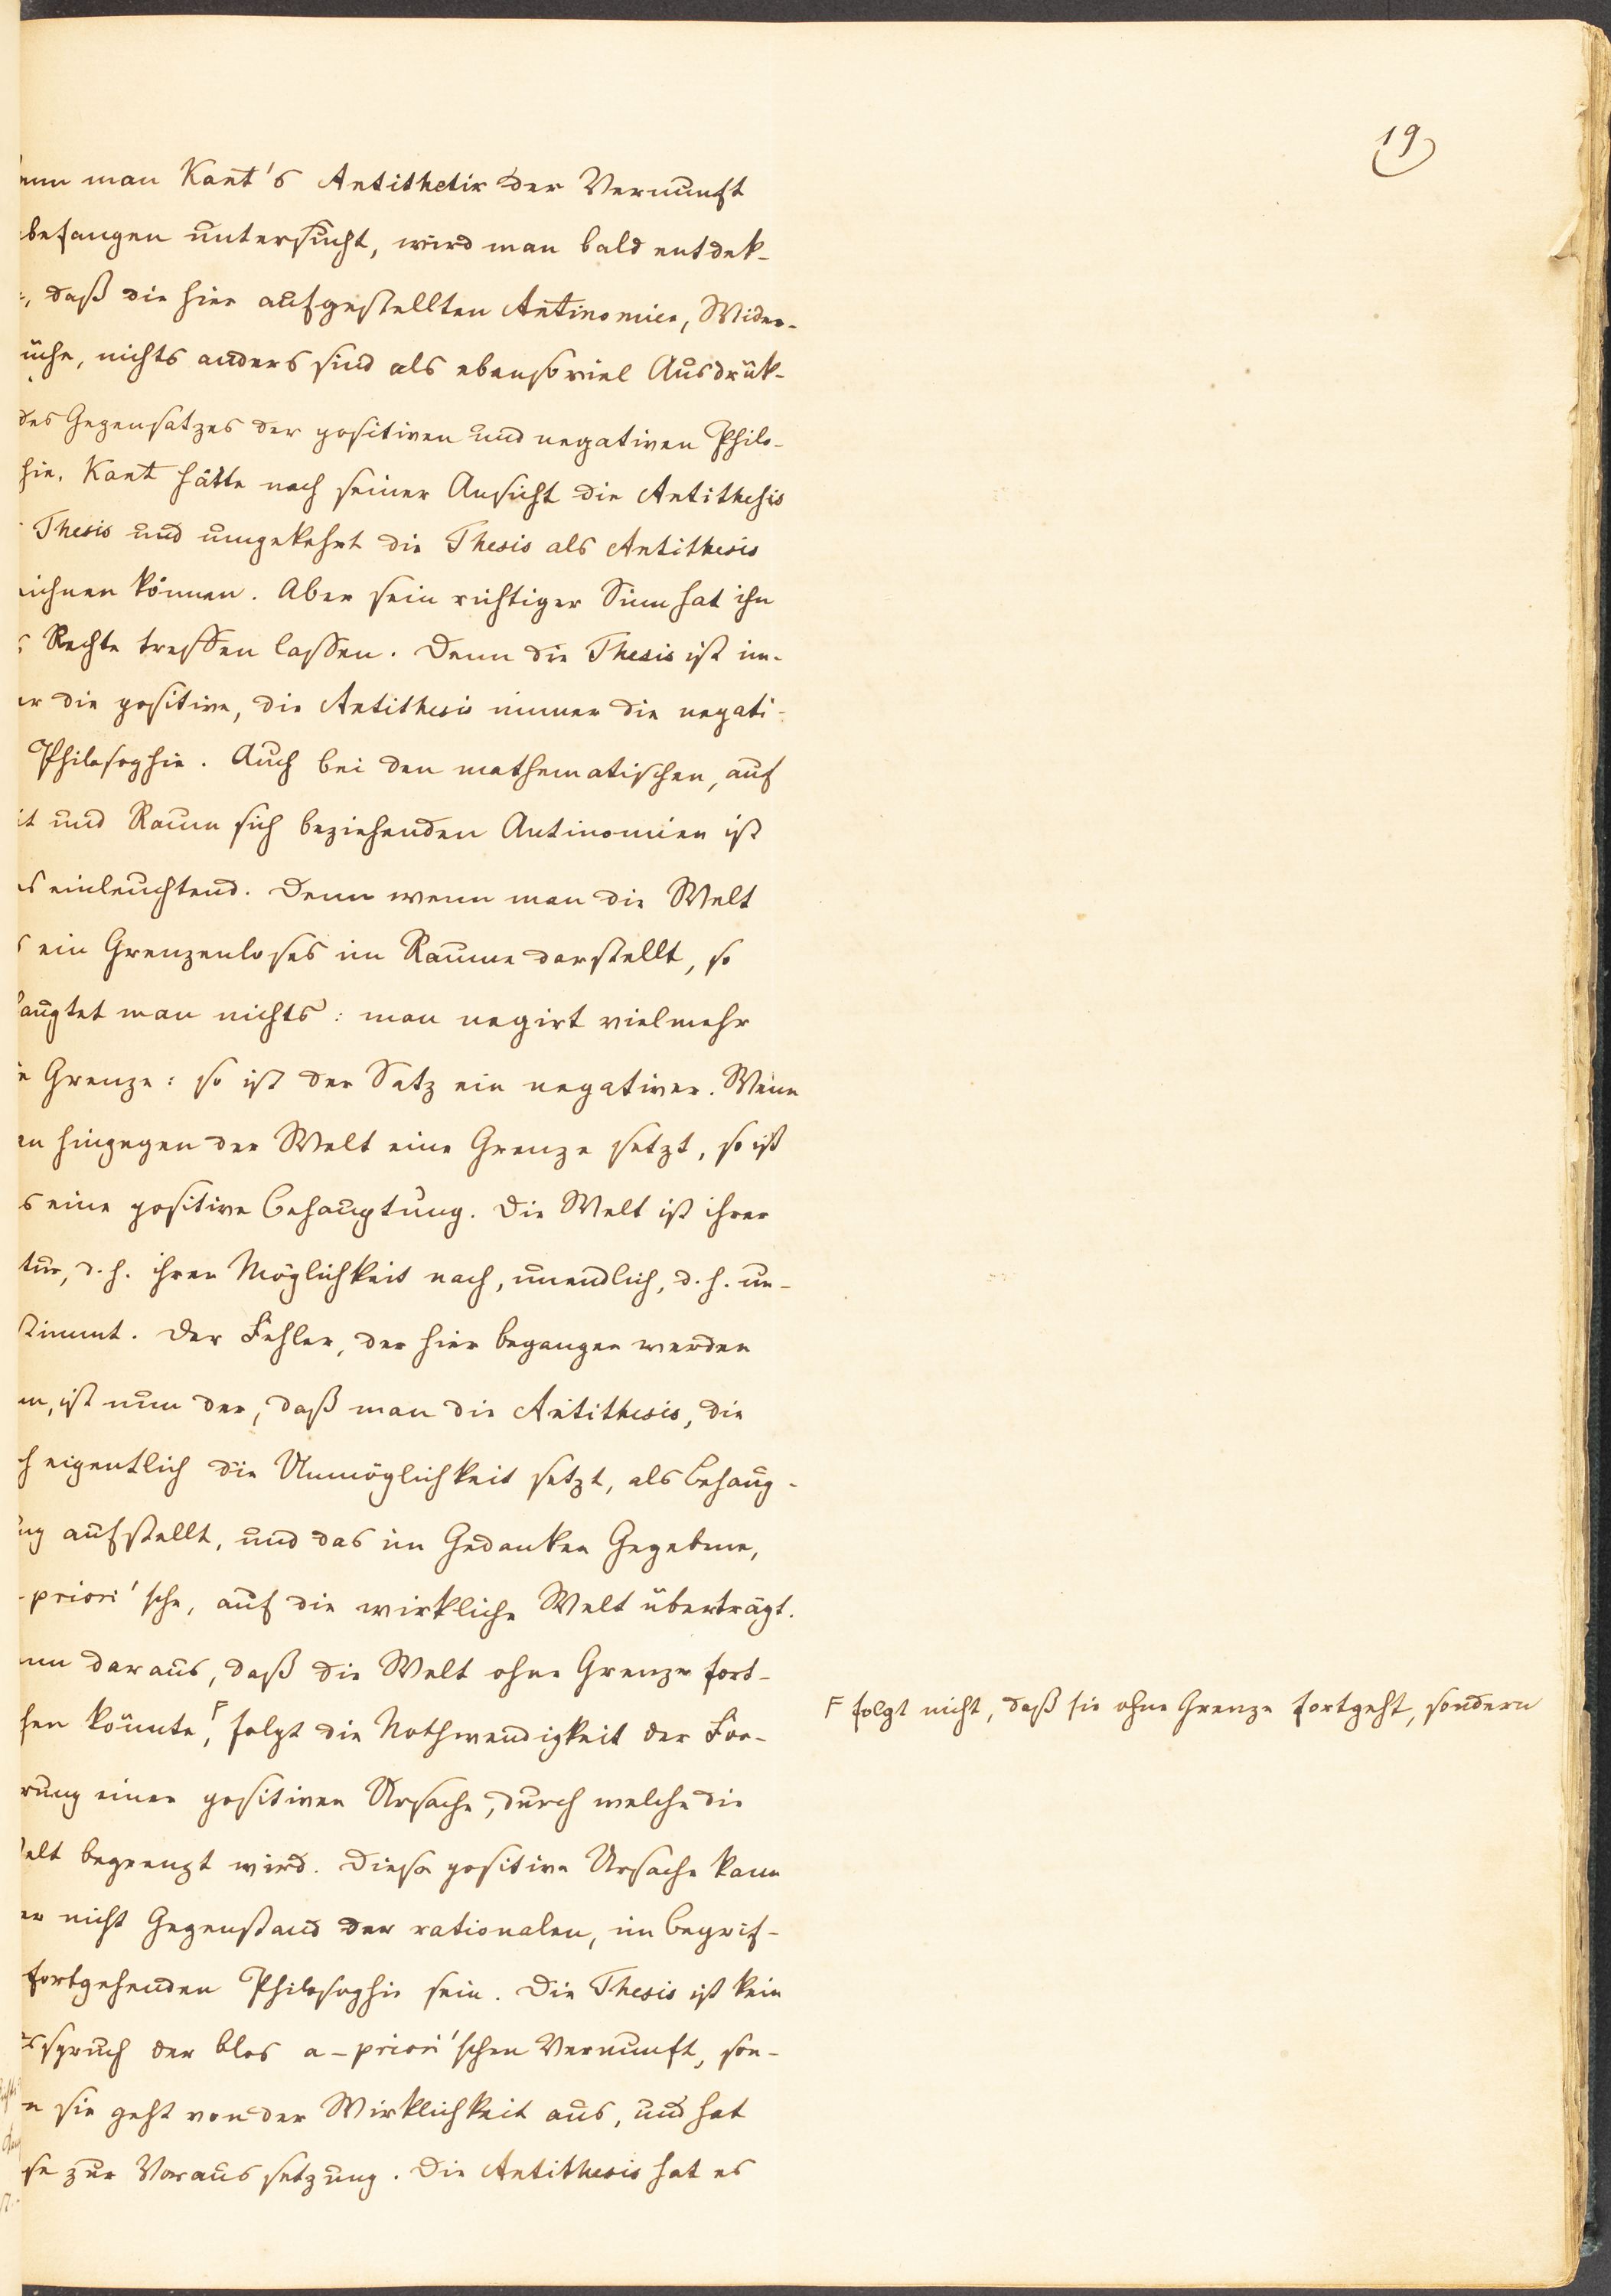 19
nn man Kant's Antithetik der Vernunft
befangen untersucht, wird man bald entdek-
, daß die hier aufgestellten Antinomien, Wider-
üche, nichts anders sind als ebensoviel Ausdrük-
des Gegensatzes der positiven und negativen Philo-
hie. Kant hätte nach seiner Ansicht die Antithesis
Thesis und umgekehrt die Thesis als Antithesis
eichnen können. Aber sein richtiger Sinn hat ihn
s Rechte treffen lassen. Denn die Thesis ist im-
er die positive, die Antithesis immer die negati-
Philosophie. Auch bei den mathematischen, auf
it und Raum sich beziehenden Antinomien ist
es einleuchtend. Denn wenn man die Welt
s ein Grenzenloses im Raume darstellt, so
auptet man nichts: man negirt vielmehr
e Grenze: so ist der Satz ein negativer. Wenn
an hingegen der Welt eine Grenze setzt, so ist
s eine positive Behauptung. Die Welt ist ihrer
tur, d. h. ihrer Möglichkeit nach, unendlich, d. h. un-
stimmt. Der Fehler, der hier begangen werden
nn, ist nun der, daß man die Antithesis, die
h eigentlich die Unmöglichkeit setzt, als Behaup-
ng aufstellt, und das im Gedanken Gegebene,
-priori'sche, auf die wirkliche Welt überträgt.
nn daraus, daß die Welt ohne Grenze fort-
hen könnte, F folgt die Nothwendigkeit der For-
F folgt nicht, daß sie ohne Grenze fortgeht, sondern
rung einer positiven Ursache, durch welche die
elt begrenzt wird. Diese positive Ursache kann
er nicht Gegenstand der rationalen, im Begrif-
fortgehenden Philosophie sein. Die Thesis ist kein
sspruch der blos a-priori'schen Vernunft, son-
n sie geht von der Wirklichkeit aus, und hat
se zur Voraussetzung. Die Antithesis hat es